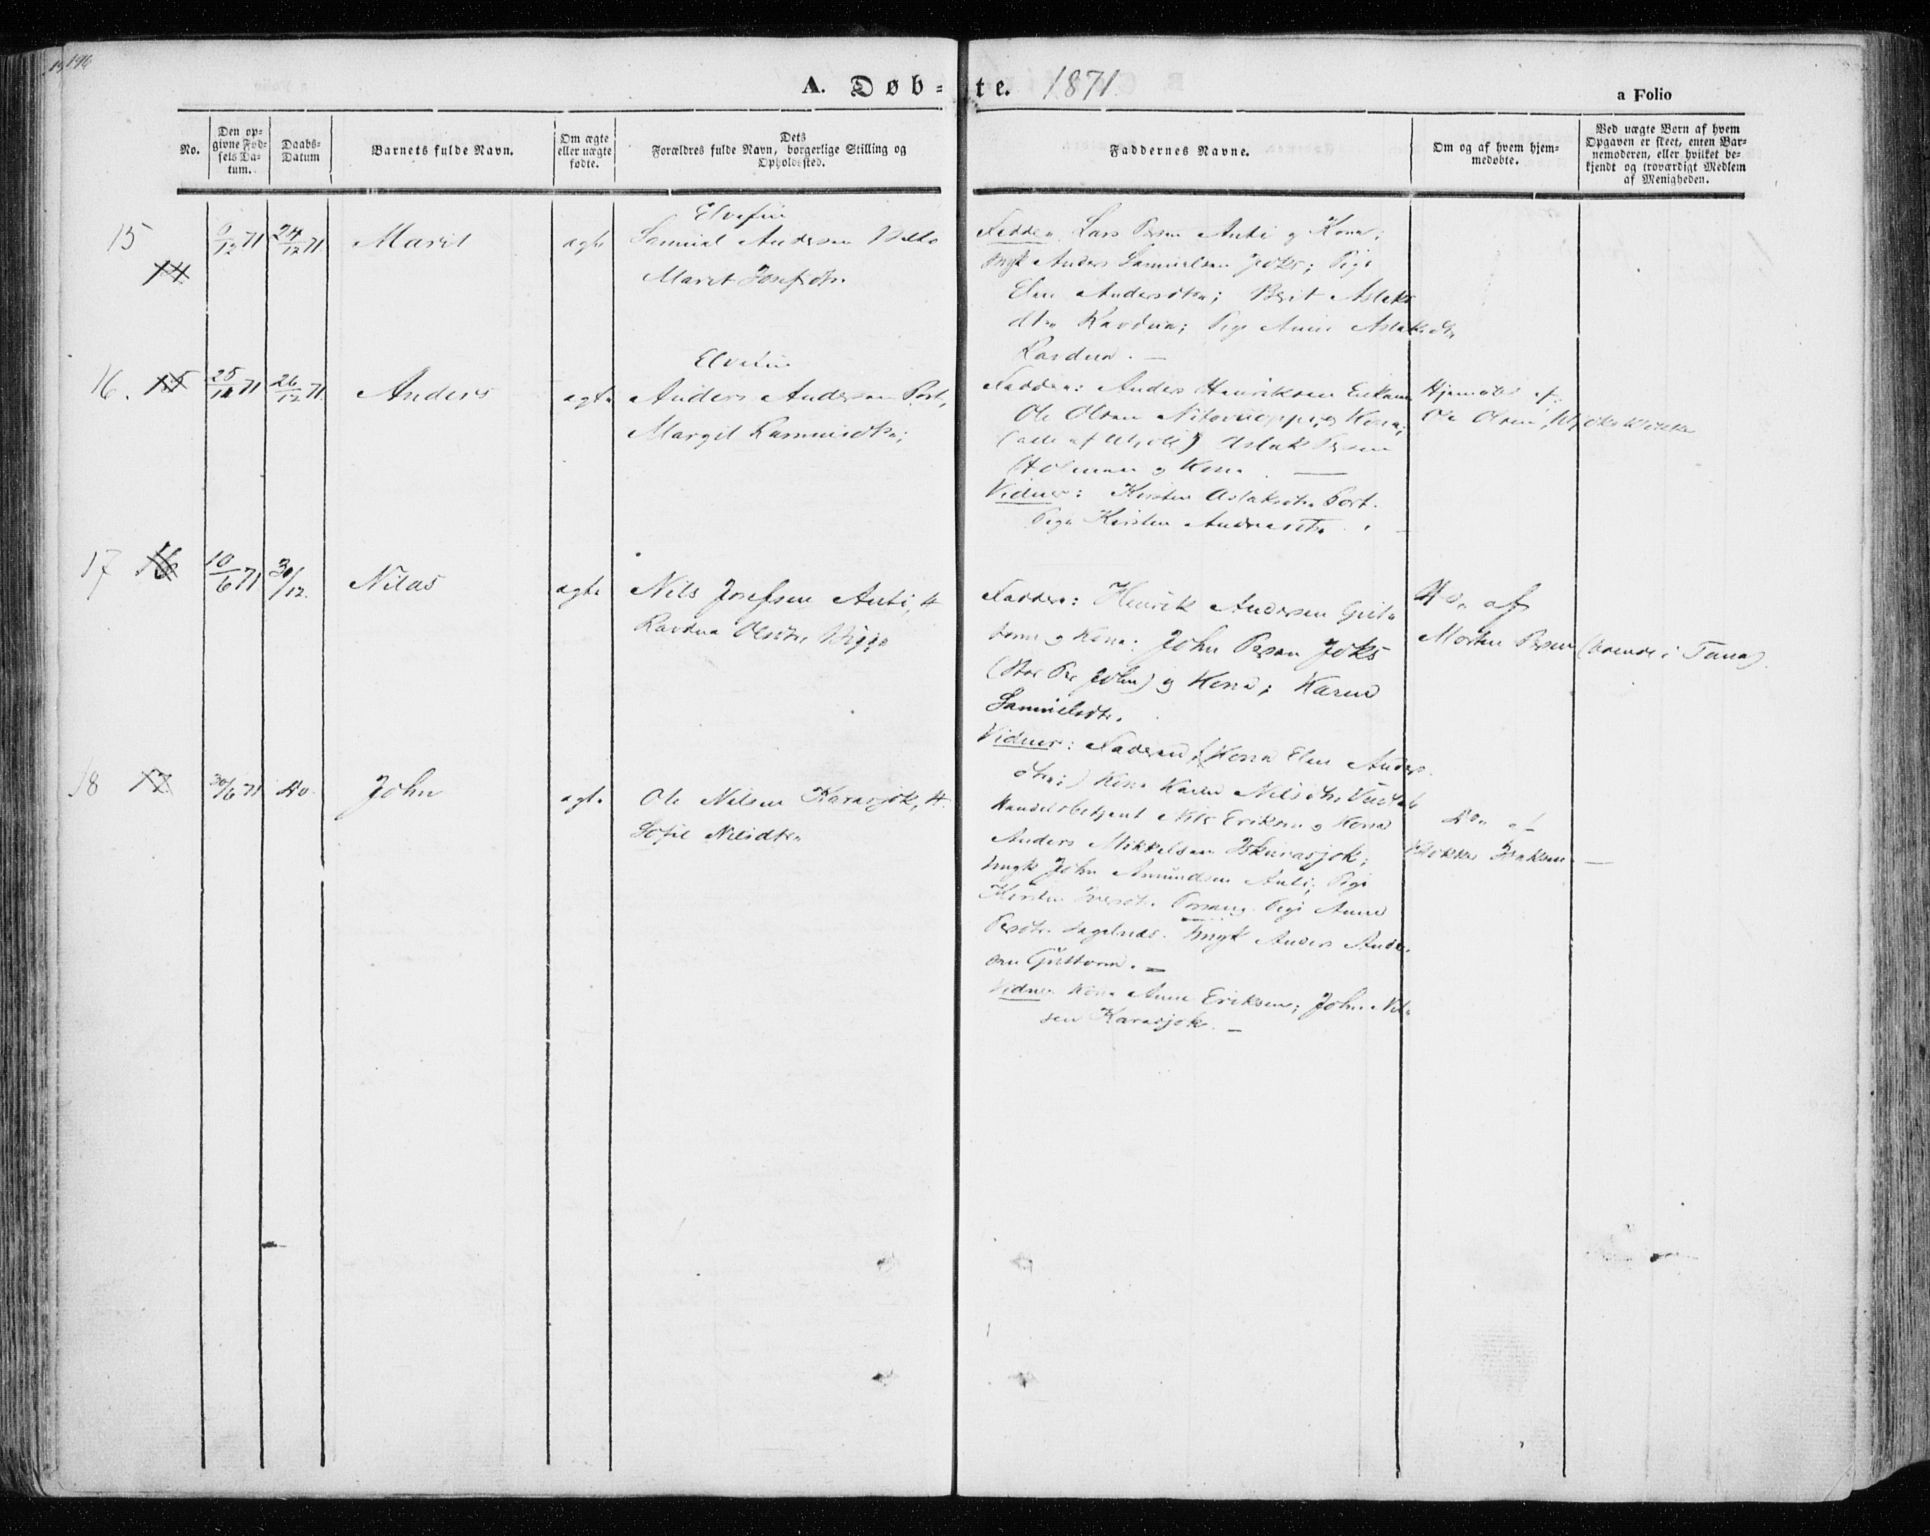 A. Døb-te. 1871.
a Folio
No.
Den op-
givne Fød-
sels Da-
tum.
Daabs-
Datum
Barnets fulde Navn.
Om ægte
eller uægte
fødte.
Dets
Forældres fulde Navn, borgerlige Stilling og
Opholdssted.
Faddernes Navne.
Om og af hvem hjem-
medøbte.
Ved uægte Børn af hvem
Opgaven er skeet, enten Bar-
nemoderen, eller hvilket be-
kjendt og troværdigt Medlem
af Menigheden.
15
14
9/12 71
24/12 71
Marit
ægte
Samuel Andersen
Marit Josefsdtr.
Lars Persen Anti og Kona;
Ungk Anders Samuelsen Joks; Pige
Elen Andersdtr; Berit Aslaks
dtr Ravdna; Pige Anne Aslaksdtr
Ravdna. —
16. 15
26/12 71
Anders
ægte
Anders Andersen Port,
Margit Rasmusdtr;
Faddere: Anders Henriksen
Ole Olsen og Kona;
Aslak Persen
og Kona. —
Vidner: Kirsten Aslaksdtr Port.
Pige Kirsten Andersdtr.
Hjemdøbt af:
Ole Olsen,
17 16
10/6 71
30/12.
Nilas
ægte
Nils Josefsen Anti, &
Ravdna Olsdtr
Faddere: Henrik Andersen
og Kona: John Persen Joks
(Store Per John) og Kona; Karen
Samuelsdtr.
Vidner: Faderen, Kona Elen Anders
dtr;) Kona Karen Nilsdtr
Do. af
Morten Persen (boende i Tana).
18 17
30/6 71
do.
John
ægte
Ole Nilsen Karasjok, &
Sofie Nilsdtr
Handelsbetjent Nils Eriksen og Kona
Anders Mikkelsen Iskurasjok;
Ungk John Amundsen Anti; Pige
Kirsten
Pige Anne
Persdtr. Ungk Anders Ander
sen Guttorm. —
Vidner Kona Anne Eriksen; John Nil
sen Karasjok. —
Do. af